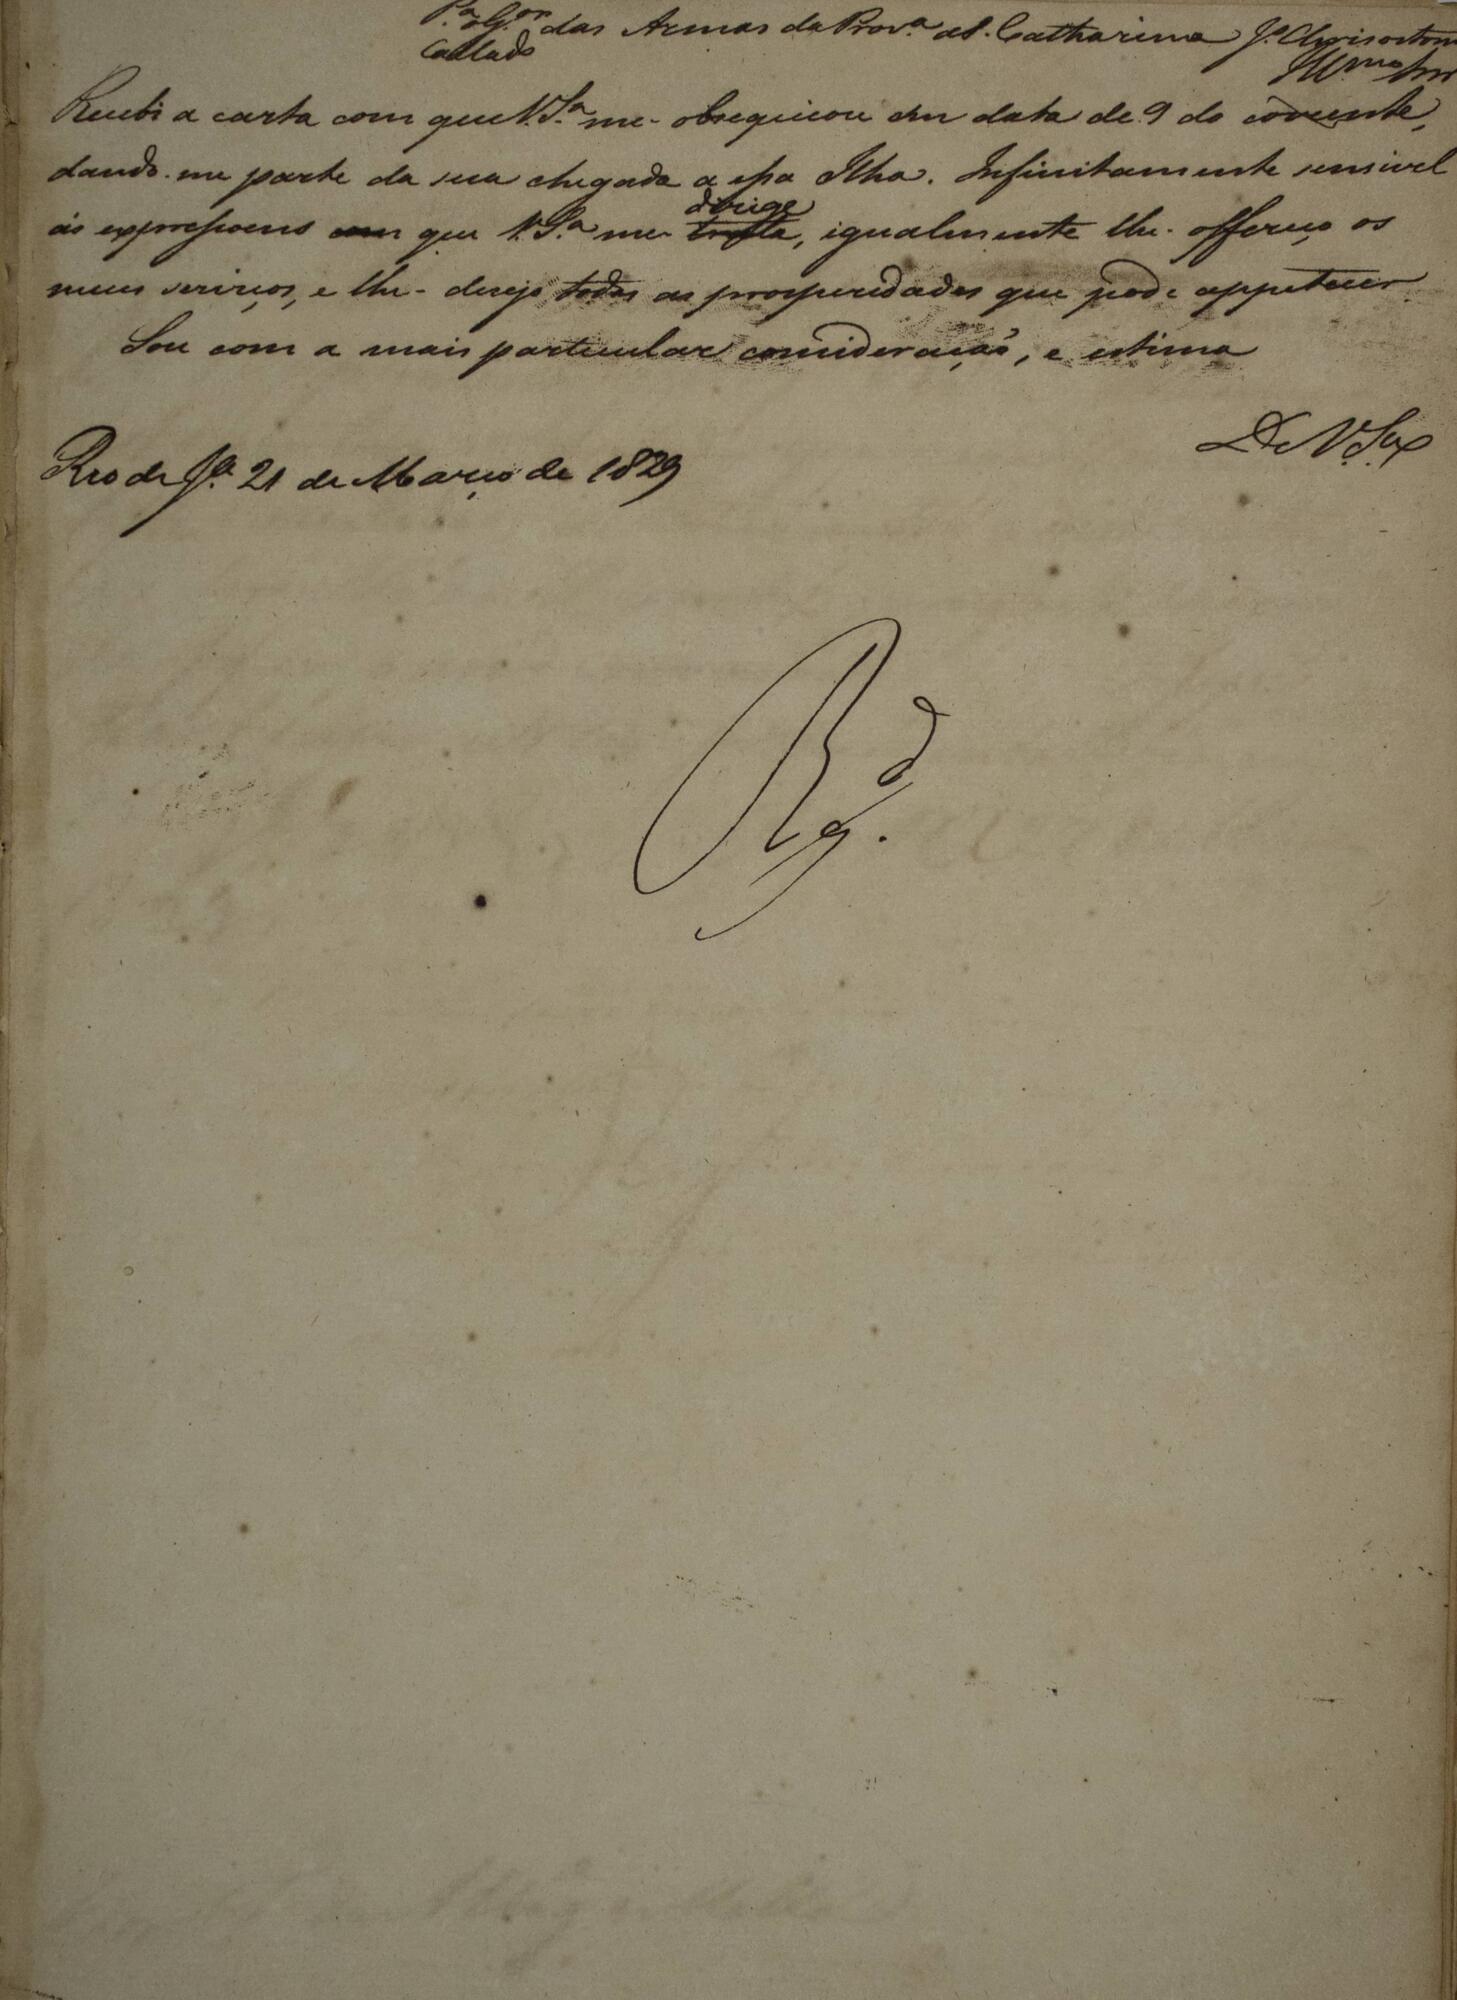 P.ª o G.or das Armas da Prov.ª de S. Catharina J.º Chrisostom
Callado
Ill.mo Snr
Recebi a carta com que V.S.ª me obsequiou em data de 9 do corrente,
dando-me parte da sua chegada a essa Ilha. Infinitamente sensivel
ás expressoens com que V.S.ª me dirige, igualmente lhe offereço os
meus serviços, e lhe desejo todas as prosperidades que pode appetecer
Sou com a mais particular consideração, e estima
De V.S.ª
Rio de J.º 21 de Março de 1829
Rg.d